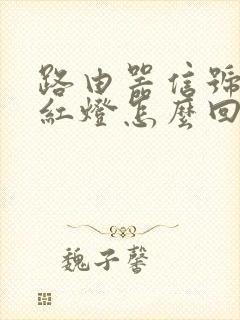 路由器信號
紅燈怎麼回
魏子馨